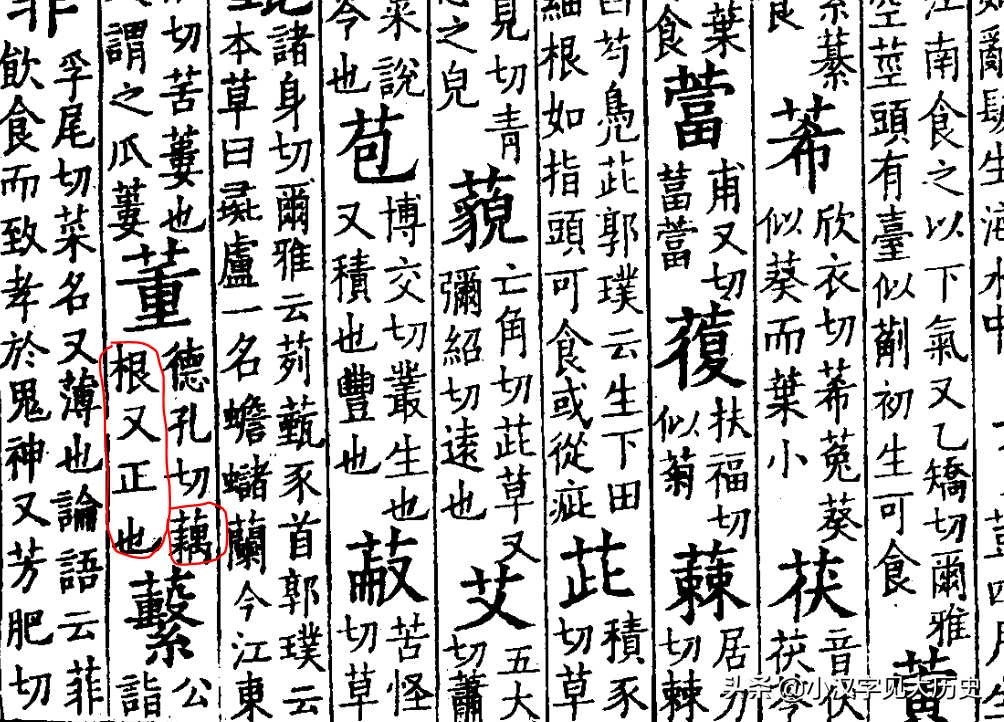 亂髮生海水中
江南食之以下氣又乙矯切爾雅
空莖頭有臺似薊初生可食
綦
食
莃
欣衣切莃菟葵
似葵而葉小
茯
音伏
茯苓
葉
食
甫又切
蕧
扶福切
似菊
蕀
居力
切蕀
芍鳧茈郭璞云生下田
細根如指頭可食或從疵
茈
積豕
切草
見切青
之皃
藐
亡角切茈草又
彌紹切遠也
艾
五大
切蕭
菜說
今也
苞
博交切叢生也
又積也豐也
苦怪
切草
諸身切爾雅云茢甄豕首郭璞云
本草曰彘盧一名蟾蠩蘭今江東
切苦蔞也
謂之瓜蔞
董
德孔切藕
根又正也
公
詣
菲
孚尾切菜名又薄也論語云菲
飲食而致孝於鬼神又芳肥切
头条@小汉字见大历史